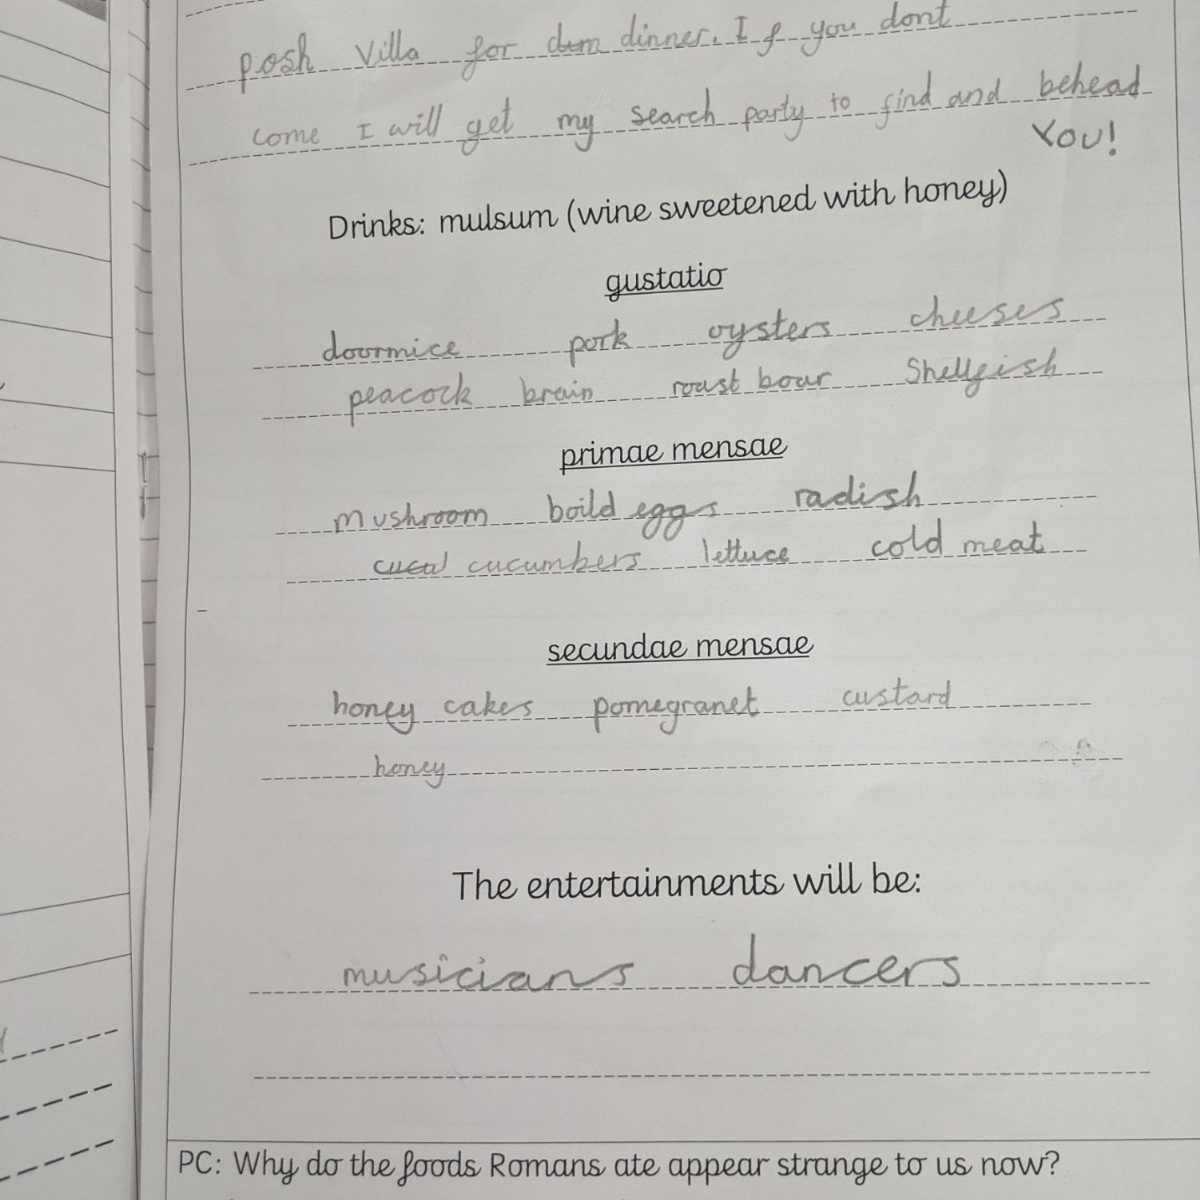 posh Villa for dum dinner. If you dont
come I will get my search party to find and behead
YOU!
Drinks: mulsum (wine sweetened with honey)
gustatio
doormice pork oysters cheeses
peacock brain roast boar Shellfish
primae mensae
mushroom boild eggs radish
cucu cucumbers lettuce cold meat
secundae mensae
honey cakes pomegranet custard
honey
The entertainments will be:
musicians dancers
PC: Why do the foods Romans ate appear strange to us now?